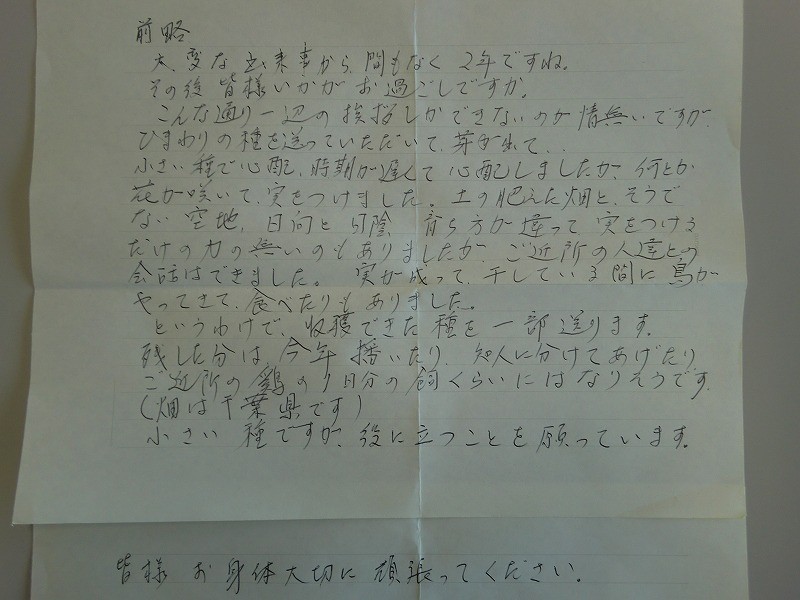 前略
大変な出来事から、間もなく2年ですね。
その後皆様いかがお過ごしですか。
こんな通り一辺の挨拶しかできないのが情無いですが、
ひまわりの種を送っていただいて、芽が出て、、
小さい種で心配、時期が遅くて心配しましたが、何とか
花が咲いて、実をつけました。土の肥えた畑と、そうで
ない空地、日向と日陰、育ち方が違って実をつける
だけの力の無いのもありましたが、ご近所の人達との
会話はできました。実が成って、干している間に鳥が
やってきて、食べたりもありました。
というわけで、収穫できた種を一部送ります。
残した分は、今年播いたり、知人に分けてあげたり
ご近所の鶏の1日分の餌くらいにはなりそうです。
(畑は千葉県です)
小さい種ですが、役に立つことを願っています。
皆様お身体大切に頑張ってください。